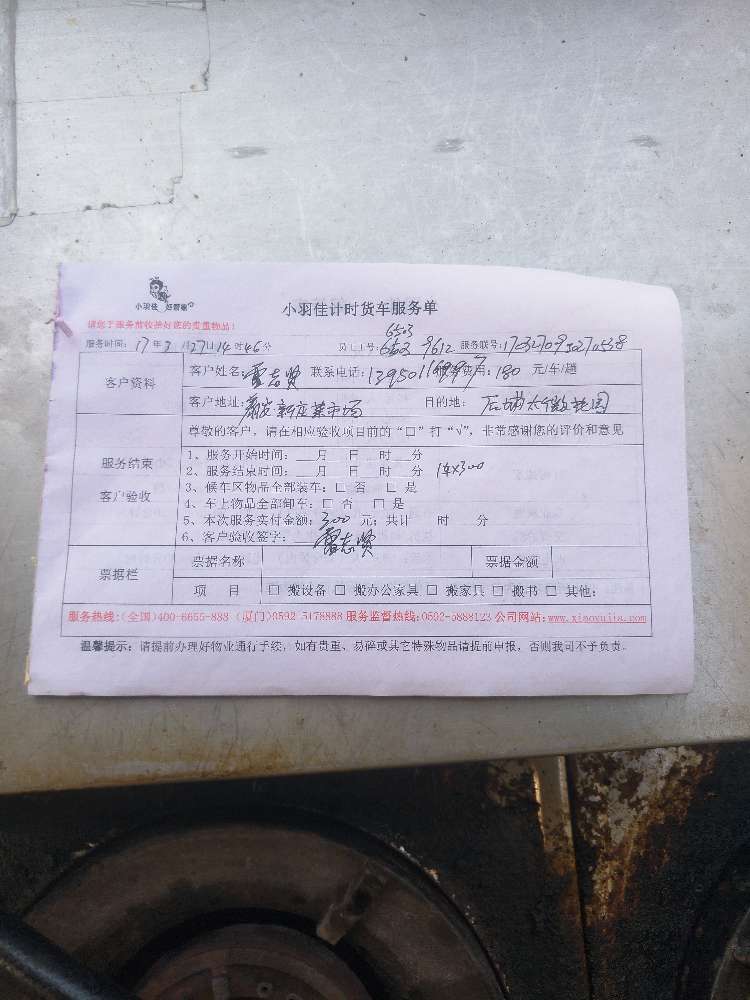 小羽佳 好帮手
小羽佳计时货车服务单
请您于服务前收拾好您的贵重物品!
6503
服务时间: 17年2月27日14时46分 员工工号: 6503 9612 服务联号:
客户资料
客户姓名: 雷志贤 联系电话: 费用: 180 元/车/趟
客户地址: 新庄菜市场 目的地:
尊敬的客户,请在相应验收项目前的“□”打“√”,非常感谢您的评价和意见
服务结束
客户验收
1、服务开始时间:__月__日__时__分
2、服务结束时间:__月__日__时__分 1车x300
3、候车区物品全部装车:□ 否 □ 是
4、车上物品全部卸车:□ 否 □ 是
5、本次服务实付金额: 300 元; 共计 时 分
6、客户验收签字: 雷志贤
票据栏
票据名称 票据金额
项 目 □ 搬设备 □ 搬办公家具 □ 搬家具 □ 搬书 □ 其他:
服务热线:(全国)400-6655-888 (厦门)0592-5178888 服务监督热线:0592-5888123 公司网站:www.xiaoyujia.com
温馨提示:请提前办理好物业通行手续,如有贵重、易碎或其它特殊物品请提前申报,否则我司不予负责。